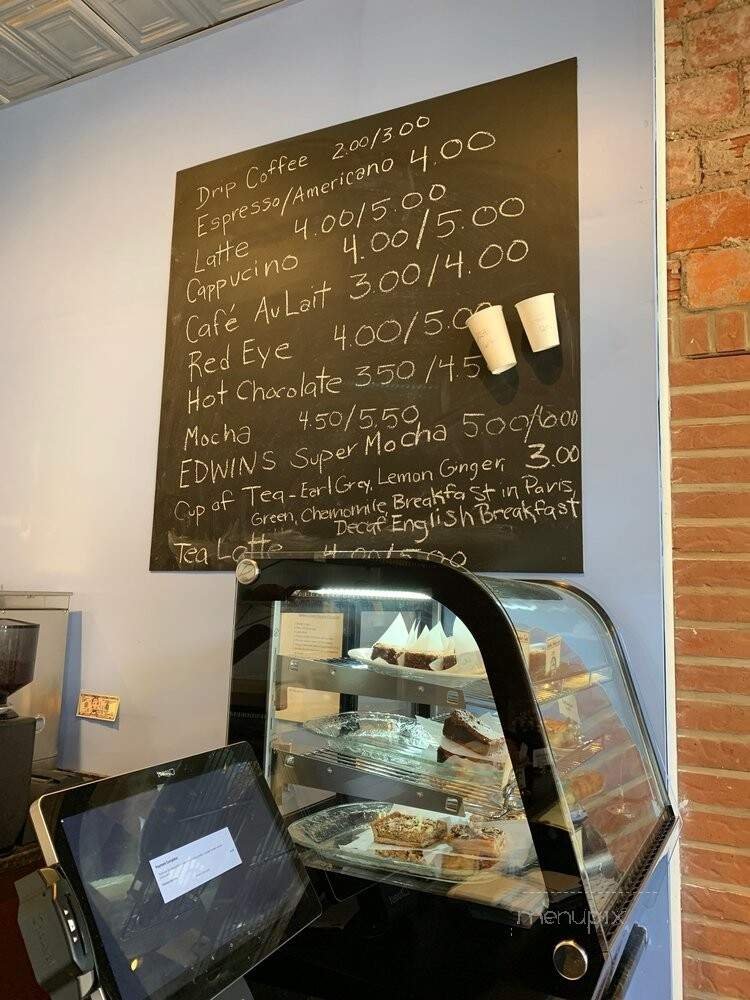 Drip Coffee 2.00/3.00
Espresso/Americano 4.00
Latte 4.00/5.00
Cappucino 4.00/5.00
Café AuLait 3.00/4.00
Red Eye 4.00/5.00
Hot Chocolate 3.50/4.5
Mocha 4.50/5.50
EDWINS Super Mocha 5.00/6.00
Cup of Tea - Earl Grey, Lemon Ginger, 3.00
Green, Chamomile, Breakfast in Paris
Decaf English Breakfast
Tea Latte 4.00/5.00
menupix